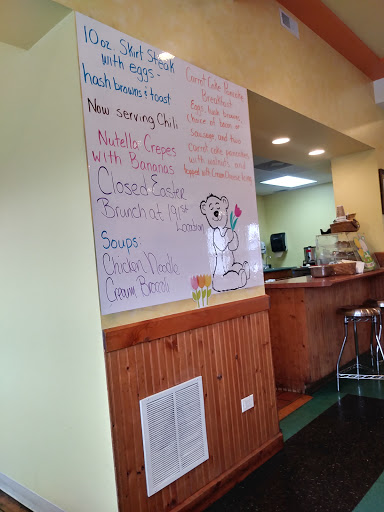 10 oz. Skirt Steak
with eggs -
hash browns & toast
Now serving Chili
Nutella Crepes
with Bananas
Closed Easter
Brunch at 191st
Location
Soups:
Chicken Noodle
Cream Broccoli
Carrot Cake Pancake
Breakfast
Eggs, hash browns,
choice of bacon or
sausage, and two
carrot cake pancakes
with walnuts and
topped with Cream Cheese